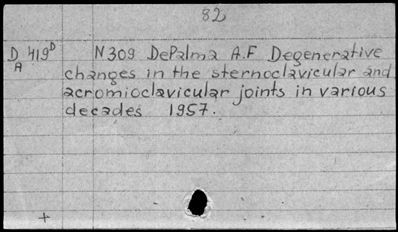 82
D 419D N309 DePalma A.F Degenerative
A changes in the sternoclavicular and
acromioclavicular joints in various
decades 1957.
+